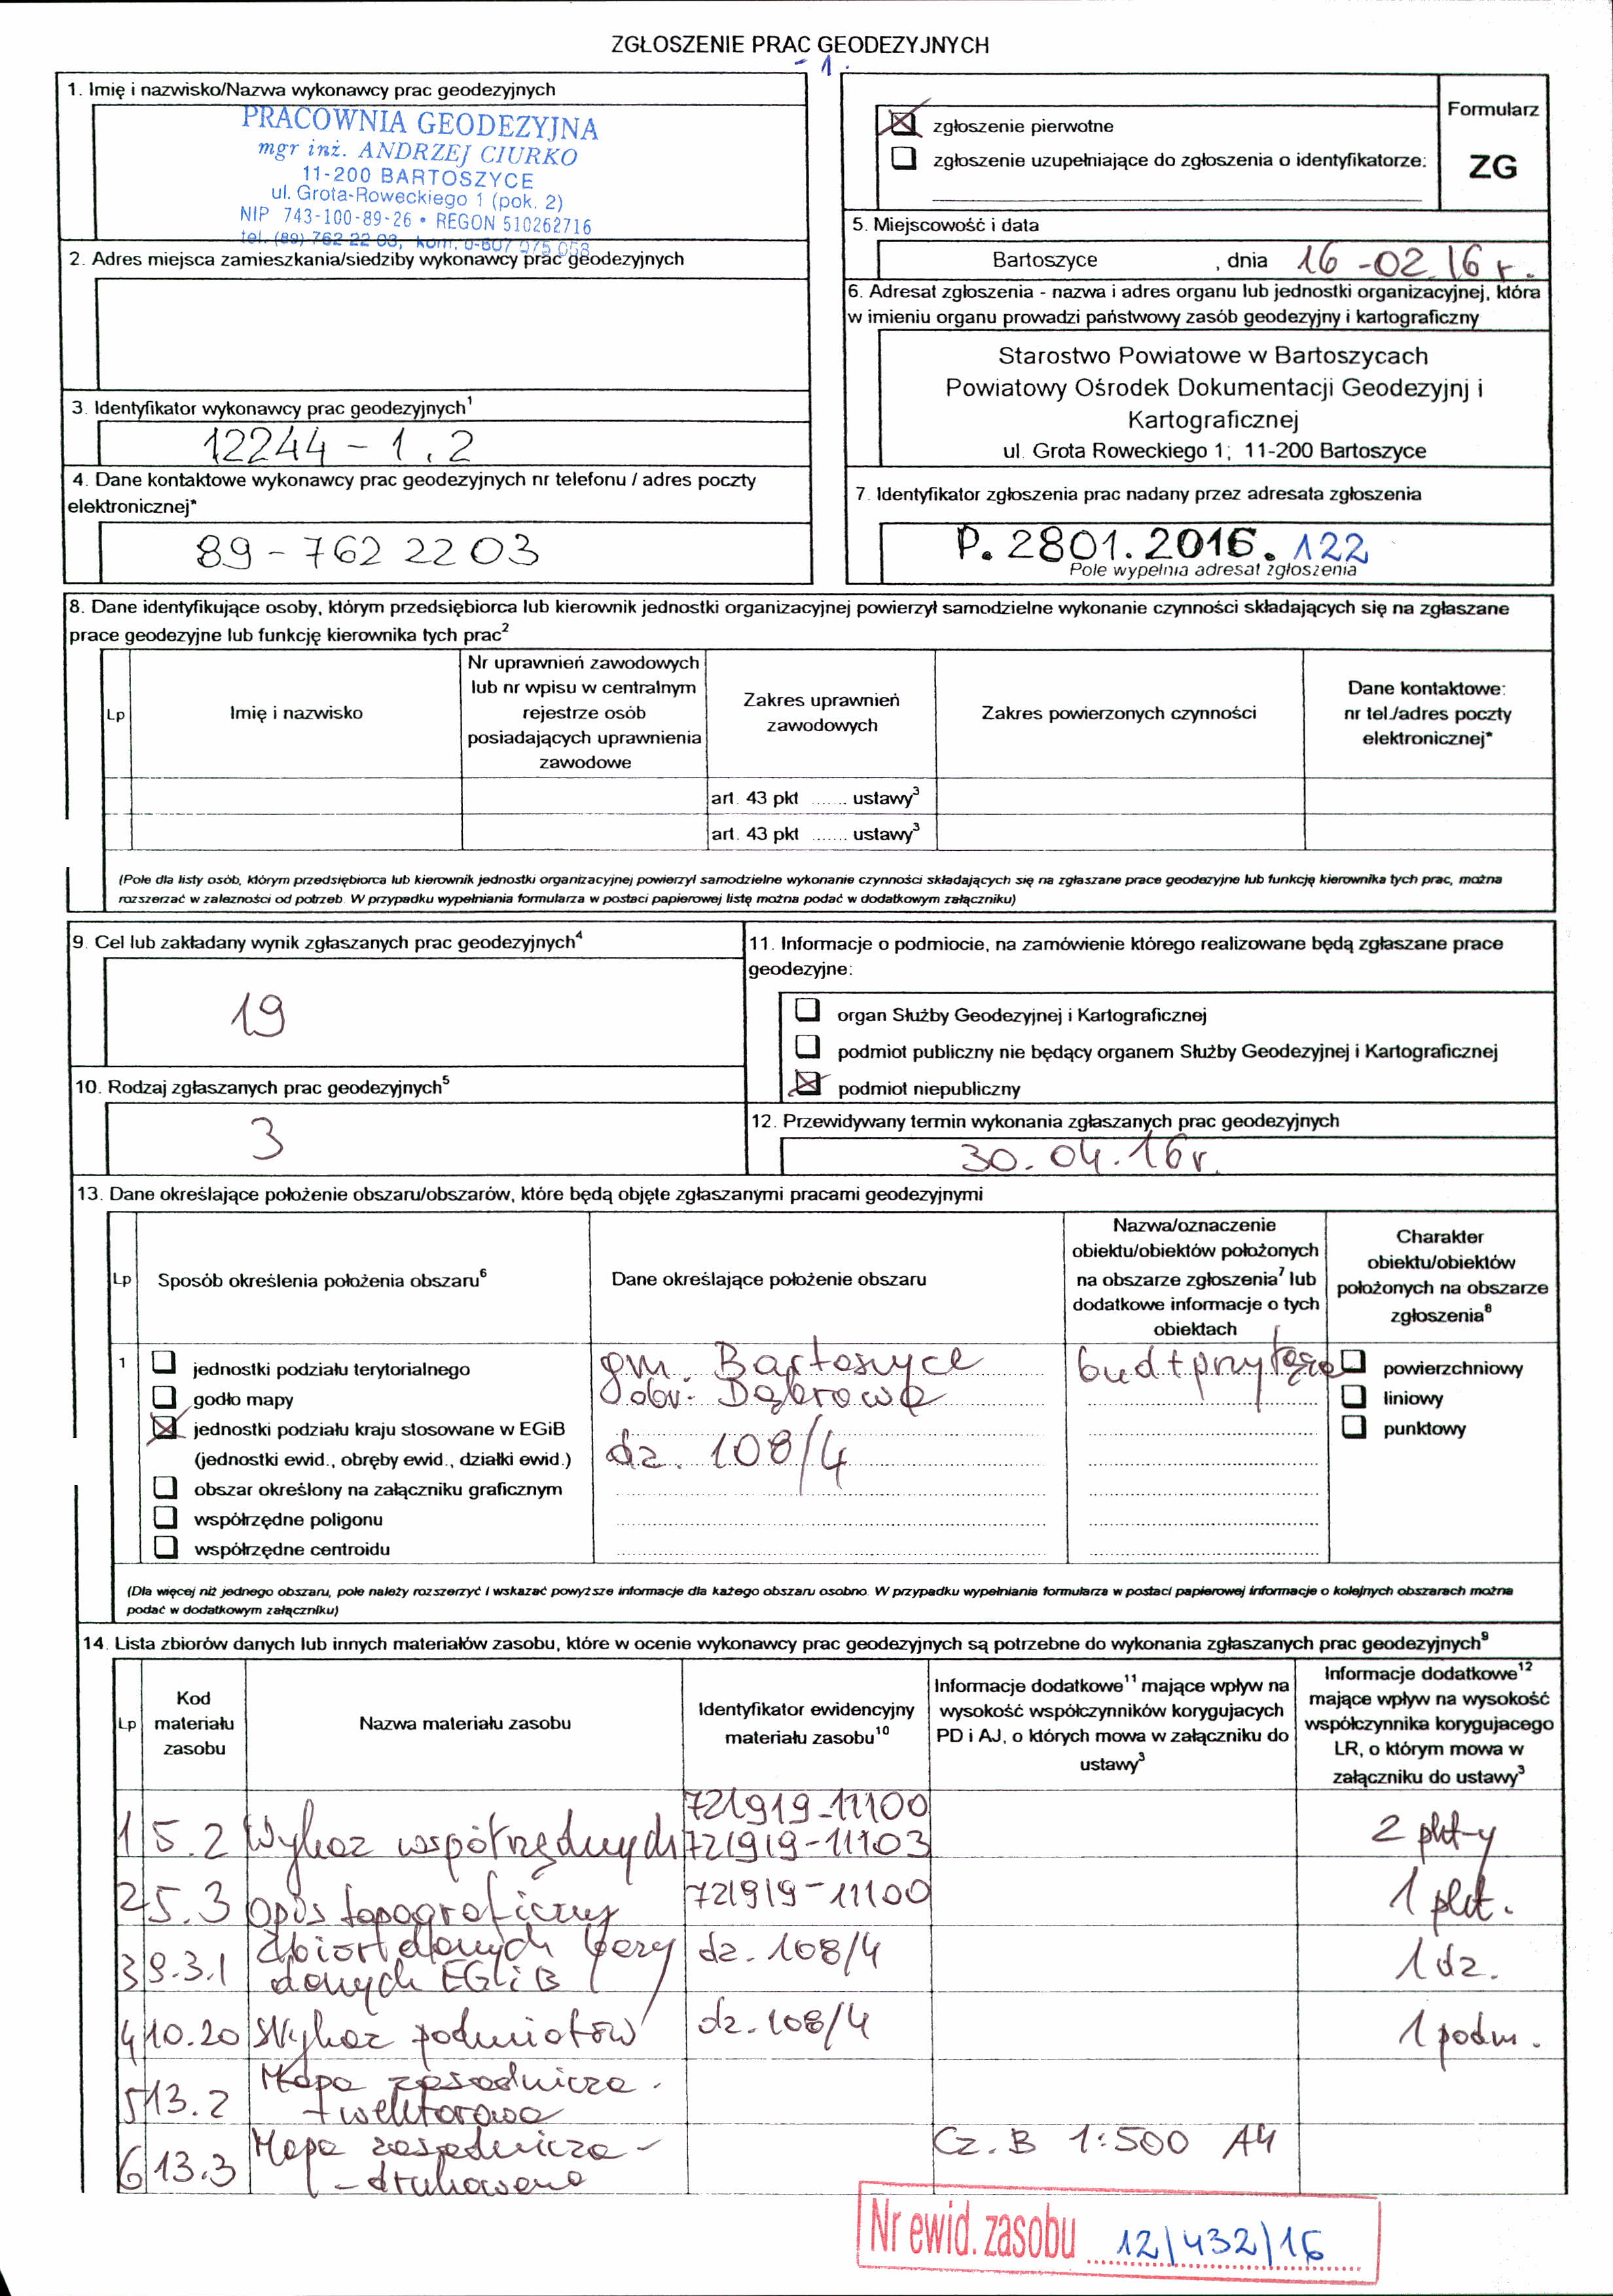 ZGŁOSZENIE PRAC GEODEZYJNYCH
- 1 -
1. Imię i nazwisko/Nazwa wykonawcy prac geodezyjnych
PRACOWNIA GEODEZYJNA
mgr inż. ANDRZEJ CIURKO
11-200 BARTOSZYCE
ul. Grota-Roweckiego 1 (pok. 2)
NIP 743-100-89-26 • REGON 510262716
tel. (89) 762 22 03, kom. 0-607 075 058
2. Adres miejsca zamieszkania/siedziby wykonawcy prac geodezyjnych
3. Identyfikator wykonawcy prac geodezyjnych1
12244 - 1, 2
4. Dane kontaktowe wykonawcy prac geodezyjnych nr telefonu / adres poczty
elektronicznej*
89 - 762 22 03
zgłoszenie pierwotne
zgłoszenie uzupełniające do zgłoszenia o identyfikatorze:
Formularz
ZG
5. Miejscowość i data
Bartoszyce , dnia 16 -02. 16 r.
6. Adresat zgłoszenia - nazwa i adres organu lub jednostki organizacyjnej, która
w imieniu organu prowadzi państwowy zasób geodezyjny i kartograficzny
Starostwo Powiatowe w Bartoszycach
Powiatowy Ośrodek Dokumentacji Geodezyjnj i
Kartograficznej
ul. Grota Roweckiego 1; 11-200 Bartoszyce
7. Identyfikator zgłoszenia prac nadany przez adresata zgłoszenia
P. 2801. 2016. 122
Pole wypełnia adresat zgłoszenia
8. Dane identyfikujące osoby, którym przedsiębiorca lub kierownik jednostki organizacyjnej powierzył samodzielne wykonanie czynności składających się na zgłaszane
prace geodezyjne lub funkcję kierownika tych prac2
Lp
Imię i nazwisko
Nr uprawnień zawodowych
lub nr wpisu w centralnym
rejestrze osób
posiadających uprawnienia
zawodowe
Zakres uprawnień
zawodowych
Zakres powierzonych czynności
Dane kontaktowe:
nr tel./adres poczty
elektronicznej*
art. 43 pkt ....... ustawy3
art. 43 pkt ....... ustawy3
(Pole dla listy osób, którym przedsiębiorca lub kierownik jednostki organizacyjnej powierzył samodzielne wykonanie czynności składających się na zgłaszane prace geodezyjne lub funkcję kierownika tych prac, można
rozszerzać w zależności od potrzeb. W przypadku wypełniania formularza w postaci papierowej listę można podać w dodatkowym załączniku)
9. Cel lub zakładany wynik zgłaszanych prac geodezyjnych4
19
10. Rodzaj zgłaszanych prac geodezyjnych5
3
11. Informacje o podmiocie, na zamówienie którego realizowane będą zgłaszane prace
geodezyjne:
organ Służby Geodezyjnej i Kartograficznej
podmiot publiczny nie będący organem Służby Geodezyjnej i Kartograficznej
podmiot niepubliczny
12. Przewidywany termin wykonania zgłaszanych prac geodezyjnych
30. 04. 16 r.
13. Dane określające położenie obszaru/obszarów, które będą objęte zgłaszanymi pracami geodezyjnymi
Lp
Sposób określenia położenia obszaru6
Dane określające położenie obszaru
Nazwa/oznaczenie
obiektu/obiektów położonych
na obszarze zgłoszenia7 lub
dodatkowe informacje o tych
obiektach
Charakter
obiektu/obiektów
położonych na obszarze
zgłoszenia8
1
jednostki podziału terytorialnego
godło mapy
jednostki podziału kraju stosowane w EGiB
(jednostki ewid., obręby ewid., działki ewid.)
obszar określony na załączniku graficznym
współrzędne poligonu
współrzędne centroidu
gm. Bartoszyce
obr. Dąbrowa
dz. 108/4
bud + przyłącza
powierzchniowy
liniowy
punktowy
(Dla więcej niż jednego obszaru, pole należy rozszerzyć i wskazać powyższe informacje dla każego obszaru osobno. W przypadku wypełniania formularza w postaci papierowej informacje o kolejnych obszarach można
podać w dodatkowym załączniku)
14. Lista zbiorów danych lub innych materiałów zasobu, które w ocenie wykonawcy prac geodezyjnych są potrzebne do wykonania zgłaszanych prac geodezyjnych9
Lp
Kod
materiału
zasobu
Nazwa materiału zasobu
Identyfikator ewidencyjny
materiału zasobu10
Informacje dodatkowe11 mające wpływ na
wysokość współczynników korygujacych
PD i AJ, o których mowa w załączniku do
ustawy3
Informacje dodatkowe12
mające wpływ na wysokość
współczynnika korygujacego
LR, o którym mowa w
załączniku do ustawy3
721919-11100
1 5.2 Wykaz współrzędnych 721919-11103 2 pkt-y
2 5.3 Opis topograficzny 721919-11100 1 pkt.
3 9.3.1 Zbiór danych bazy dz. 108/4 1 dz.
danych EGiB
4 10.20 Wykaz podmiotów dz. 108/4 1 podm.
5 13.2 Mapa zasadnicza -
- wektorowa
6 13.3 Mapa zasadnicza - Cz. B 1:500 A4
- drukowana
Nr ewid. zasobu 12/432/16